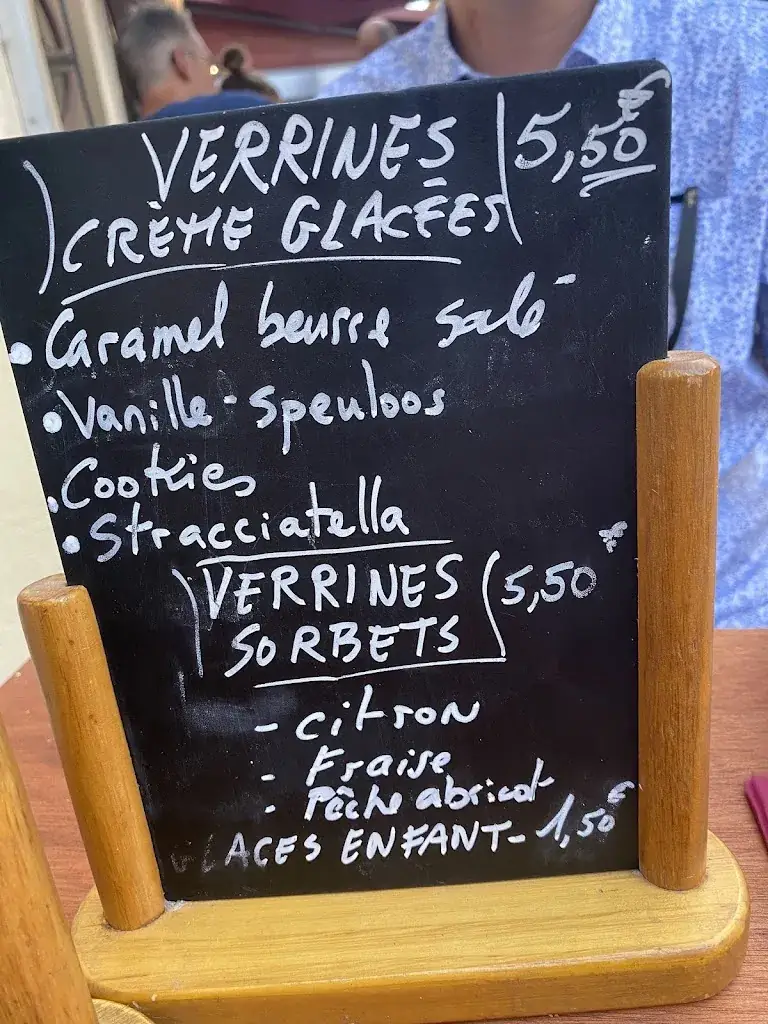 VERRINES 5,50€
CRÈME GLACÉES
• Caramel beurre salé
• Vanille-speuloos
• Cookies
• Stracciatella
VERRINES 5,50€
SORBETS
- CitRON
- Fraise
- Pêche abricot
GLACES ENFANT- 1,50€